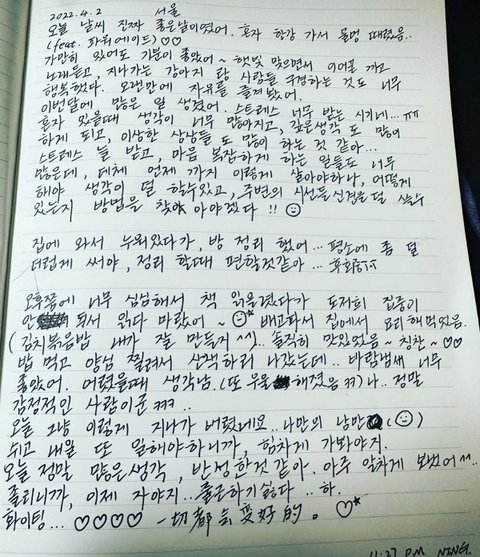 2022.4.2 서울
오늘 날씨 진짜 좋은날이였어. 혼자 한강 가서 물멍 때렸음..
(feat. 파워에이드)♡♡
가만히 있어도 기분이 좋았어~ 햇빛 맞으면서 이어폰 끼고
노래듣고, 지나가는 강아지 랑 사람들 구경하는 것도 너무
행복했다. 오랜만에 자유를 즐겨봤어.
이번달에 많은 일 생겼어. 스트레스 너무 받는 시기네...ㅠㅠ
혼자 있을때 생각이 너무 많아지고, 깊은생각 도 많이
하게 되고, 이상한 상상들 도 많이 하는 것 같아...
스트레스 늘 받고, 마음 복잡하게 하는 일들도 너무
많은데, 대체 언제 까지 이렇게 살아야하나, 어떻게
해야 생각이 덜 할수있고, 주변의 시선들 신경을 덜 쓸수
있는지 방법을 찾아야겠다 !! ☺
집에 와서 누워있다가, 방 정리 했어... 평소에 좀 덜
더럽게 써야, 정리 할때 편할것같아 ... 후회ㅠㅠ
오후쯤에 너무 심심해서 책 읽을렸다가 도저히 집중이
안 되서 읽다 말았어~ ☺* 배고파서 집에서 요리 해먹었음.
(김치볶음밥 내가 잘 만들지 ^^). 솔직히 맛있었음~ 칭찬~♡♡
밥 먹고 양심 찔려서 산책하러 나갔는데.. 바람냄새 너무
좋았어. 어렸을때 생각남. (또 우울 해졌음 ㅋㅋ) 나.. 정말
감정적인 사람이군 ㅋㅋㅋ..
오늘 그냥 이렇게 지나가 버렸네요.. 나만의 낭만 (☺)
쉬고 내일 또 일해야하니까, 힘차게 가봐야지.
오늘 정말 많은생각, 반성한것 같아. 아주 알차게 보냈어^^..
졸리니까, 이제 자야지.. 출근하기싫다 .. 하.
화이팅... ♡♡♡♡ 一切都会变好的。♡*
11:27 PM NING.